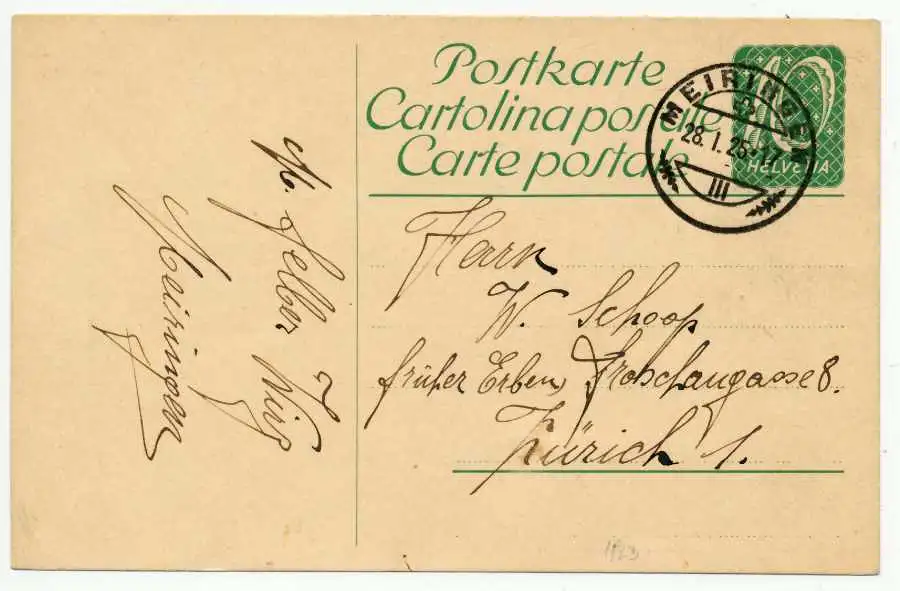 Postkarte
Cartolina postale
Carte postale
MEIRINGEN
28.I.25-17
III
10
HELVETIA
Herrn
W. Schoop
früher Erben, Froschaugasse 8.
Zürich 1.
Felber
Meiringen
1923